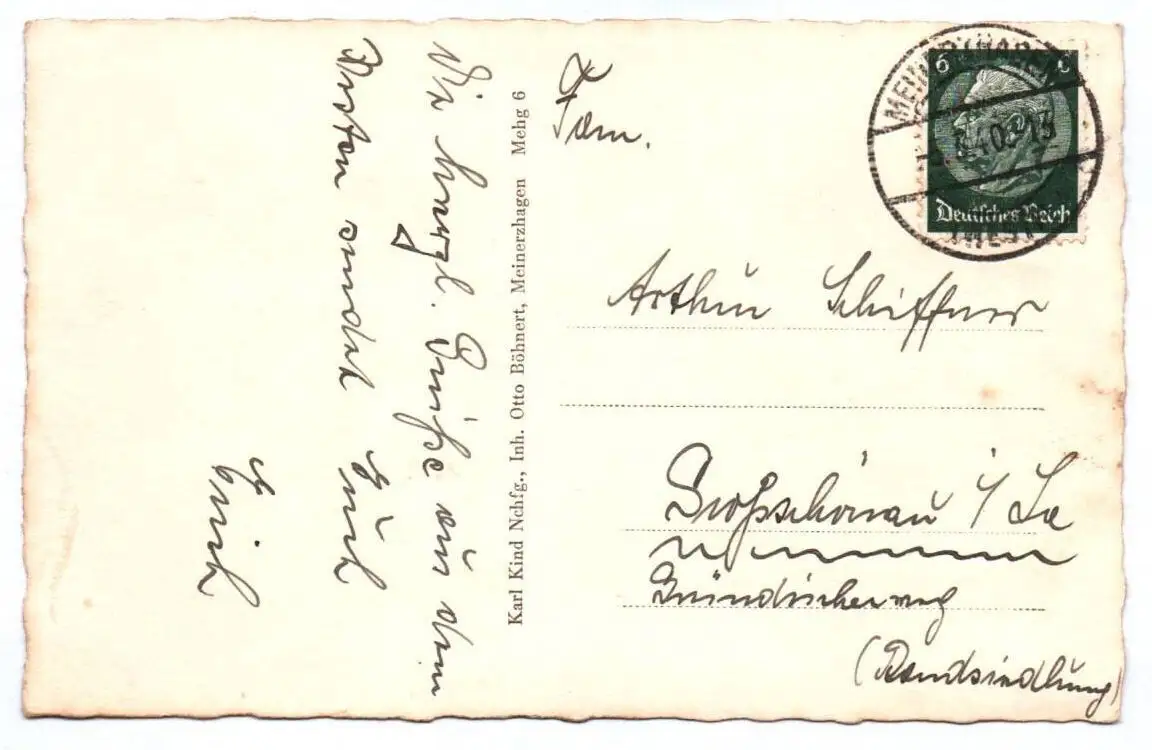 Die herzl. Grüße aus dem
Westen sendet Euch
Erich
Karl Kind Nchfg., Inh. Otto Böhnert, Meinerzhagen Mehg 6
Fam.
Arthur Schiffner
Großschönau i/Sa
(Randsiedlung)
6 6
Deutsches Reich
MEINERZHAGEN